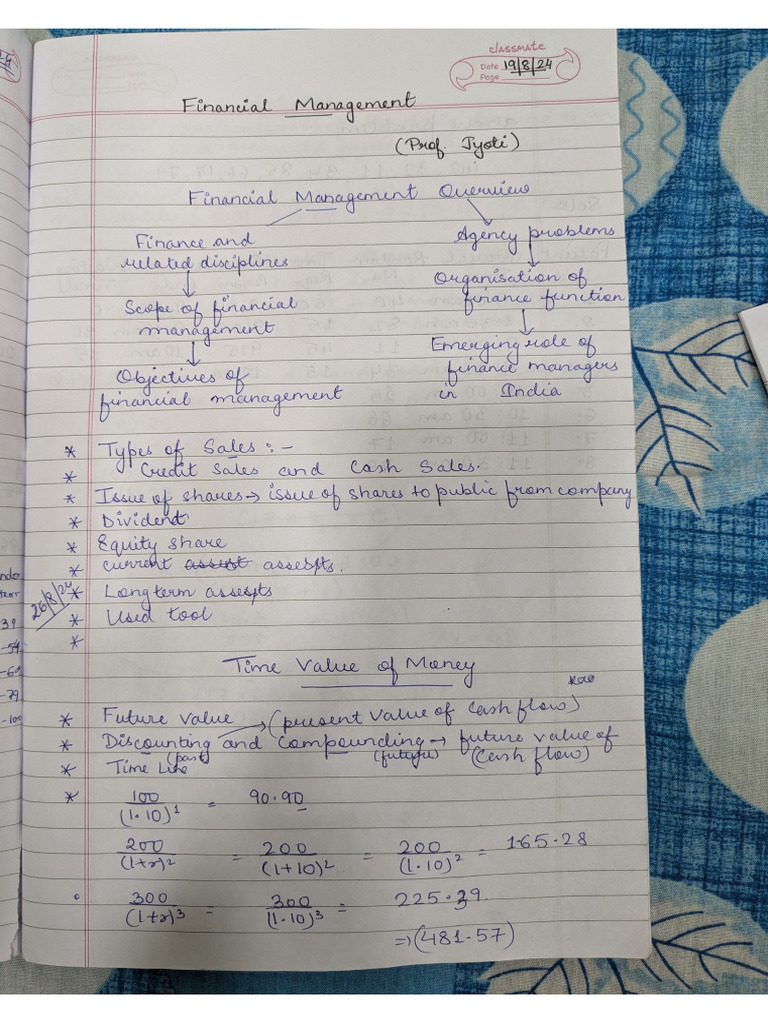 classmate
Date 19/8/24
Page
Financial Management
(Prof. Jyoti)
Financial Management Overview
Finance and
related disciplines
Scope of financial
management
Objectives of
financial management
Agency problems
Organisation of
finance function
Emerging role of
finance managers
in India
* Types of Sales :-
* Credit Sales and Cash Sales.
* Issue of shares → issue of shares to public from company
* Divident
* Equity share
* Current assets.
26/8/24
* Long term assets
* Used tool
*
Time Value of Money
* Future Value → (present value of cash flow)
* Discounting and Compounding → future value of
(past) (future) (Cash flow)
* Time Line
* 100/(1.10)^1 = 90.90
200/(1+r)^2 = 200/(1+10)^2 = 200/(1.10)^2 = 165.28
300/(1+r)^3 = 300/(1.10)^3 = 225.39
⇒ (481.57)
-54
-79
-100